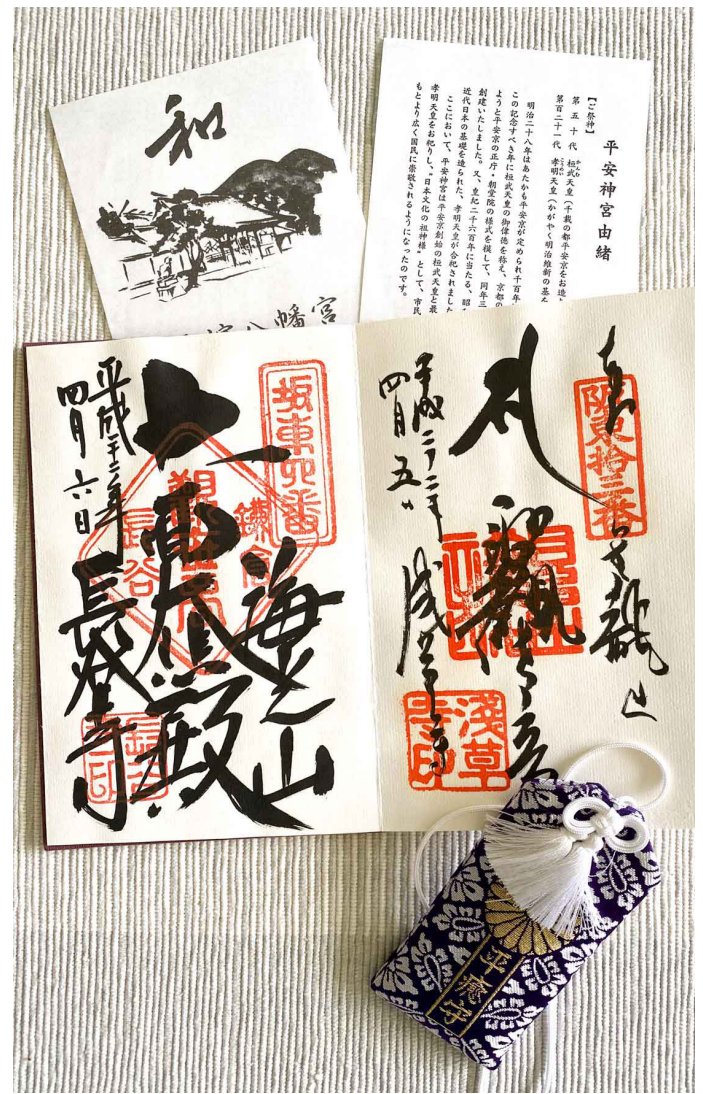 和
八幡宮
平安神宮由緒
【ご祭神】
第五十代 桓武天皇(千載の都平安京をお造
第百二十一代 孝明天皇(かがやく明治維新の基を
明治二十八年はあたかも平安京が定められ千百年
この記念すべき年に桓武天皇の御偉徳を称え、京都の
ようと平安京の正庁・朝堂院の様式を模して、同年三
創建いたしました。又、皇紀二千六百年に当たる、昭
近代日本の基礎を造られた、孝明天皇が合祀されました
ここにおいて、平安神宮は平安京創始の桓武天皇と最
孝明天皇をお祀りし、“日本文化の祖神様”として、市民
もとより広く国民に崇敬されるようになったのです。
阪東拾三番
龍山
平成二十二年
四月五日
浅草寺印
坂東四番
鎌倉
観世音
長谷
海光山
大悲殿
平成二十二年
四月六日
長谷寺
長谷寺印
平癒守